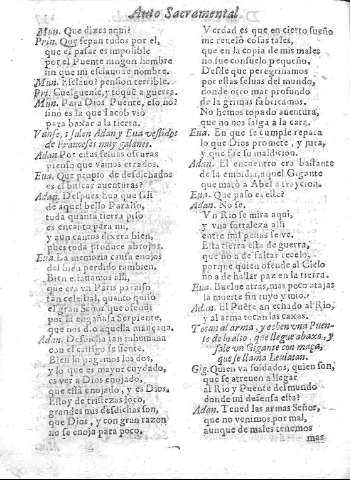 Auto Sacramental.
Mun. Que dizes aqui?
Prin. Que sepan todos por el,
que el passar es impossible
por el Puente ningun hombre
sin que mi esclauo se nombre.
Mun. Esclauo? pension terrible.
Pri. Cuelguenle, y toque a guerra.
Mun. Para Dios Puente, elo no?
sino es la que Iacob viò
para baxar a la tierra.
Vanse, i salen Adan y Eua vestidos
de Franceses muy galanes.
Adan. Por estas seluas oscuras
pienso que vamos errados.
Eua. Que propio de desdichados
es el buscar auenturas?
Adan. Despues que sali
de aquel bello Paraiso,
toda quanta tierra piso
es encanto para mi,
y aun cantos dixera bien,
pues toda produce abrojos.
Eua. La memoria causa enojos
del bien perdido tambien.
Bien estauamos alli,
que era vn Paris paraiso
tan celestial, quanto quiso
el gran Señor que ofendi
por la engañosa Serpiente,
que nos diò aquella mançana.
Adan. Desdicha tan inhumana
con el castigo se siente.
Bien lo pagamos los dos,
y lo que es mayor cuydado,
es ver a Dios enojado,
que està enojado, y es Dios.
Estoy de tristezas loco,
grandes mis desdichas son,
que Dios, y con gran razon
no se enoja para poco.
Verdad es que en cierto sueño
me reuelò cosas tales,
que en la copia de mis males
no fue consuelo pequeño,
Desde que peregrinamos
por estas seluas del mundo,
donde otro mar profundo
de lagrimas fabricamos.
No hemos topado auentura,
que no nos salga a la cara.
Eua. En que se cumple repara
lo que Dios promete, y jura,
y que fue su maldicion.
Adan. El encuentro era bastante
de la embidia, aquel Gigante
que matò a Abel a traycion.
Eua. Que passo es este?
Adan. No se.
Vn Rio se mira aqui,
y vna fortaleza alli
entre mil peñas se ve.
Esta tierra es de guerra,
que no a de faltar recelo,
porque quien ofende al Cielo
no a de hallar paz en la tierra.
Eua. Buelue atras, mas poco atajas
la muerte sin tuyo y mio.
Adan. El Puẽte an echado al Rio,
y al arma tocan las caxas.
Tocan al arma, y echen vna Puen-
te de lo alto, que llegue abaxo, y
sale vn Gigante con maça,
que se llama Leuiatan.
Gig. Quien va soldados, quien son,
que se atreuen a llegar
al Rio y Puente del mundo
donde mi defensa està?
Adan. Tened las armas Señor,
que no venimos por mal,
aunque de males tenemos
mas